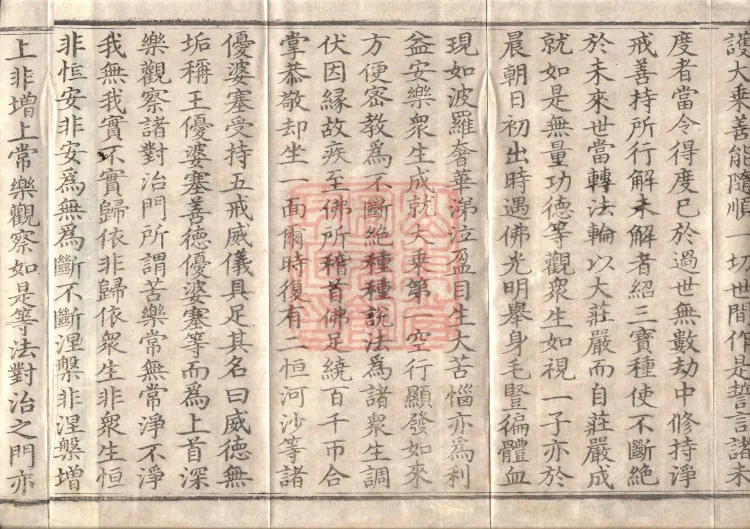 護大乗善能隨順一切世間作是誓言諸未
度者當令得度已於過世無數劫中修持淨
戒善持所行解未解者紹三寶種使不斷絕
於未來世當轉法輪以大莊嚴而自莊嚴成
就如是無量功德等觀衆生如視一子亦於
晨朝日初出時遇佛光明舉身毛竪徧體血
現如波羅奢華涕泣盈目生大苦惱亦爲利
益安樂衆生成就大乗第一空行顯發如來
方便密教爲不斷絕種種說法爲諸衆生調
伏因縁故疾至佛所稽首佛足繞百千帀合
掌恭敬却坐一面爾時復有二恒河沙等諸
優婆塞受持五戒威儀具足其名曰威德無
垢稱王優婆塞善德優婆塞等而爲上首深
樂觀察諸對治門所謂苦樂常無常淨不淨
我無我實不實歸依非歸依衆生非衆生恒
非恒安非安爲無爲斷不斷涅槃非涅槃增
上非增上常樂觀察如是等法對治之門亦